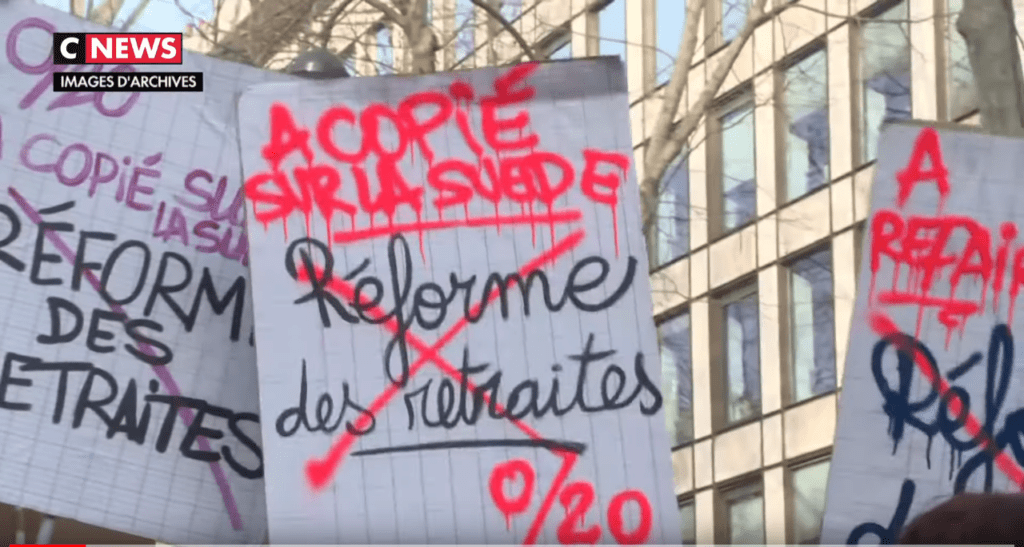 CNEWS
IMAGES D'ARCHIVES
A COPIÉ SUR
LA SU
RÉFORM
DES
ETRAITES
A COPIÉ
SUR LA SUEDE
Réforme
des retraites
0/20
A
REFAIR
Réfo
d